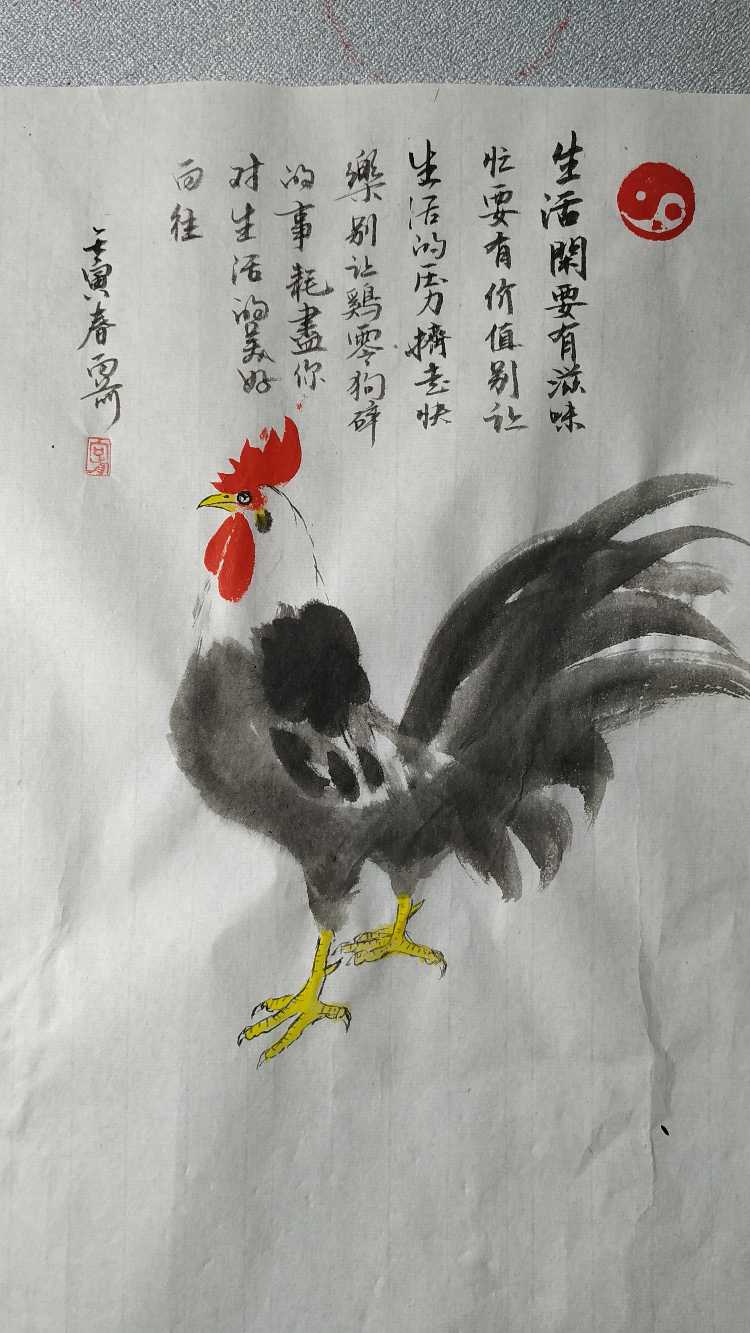 生活閑要有滋味
忙要有价值别让
生活的压力擠走快
樂别让鷄零狗碎
的事耗盡你
对生活的美好
向往
壬寅春